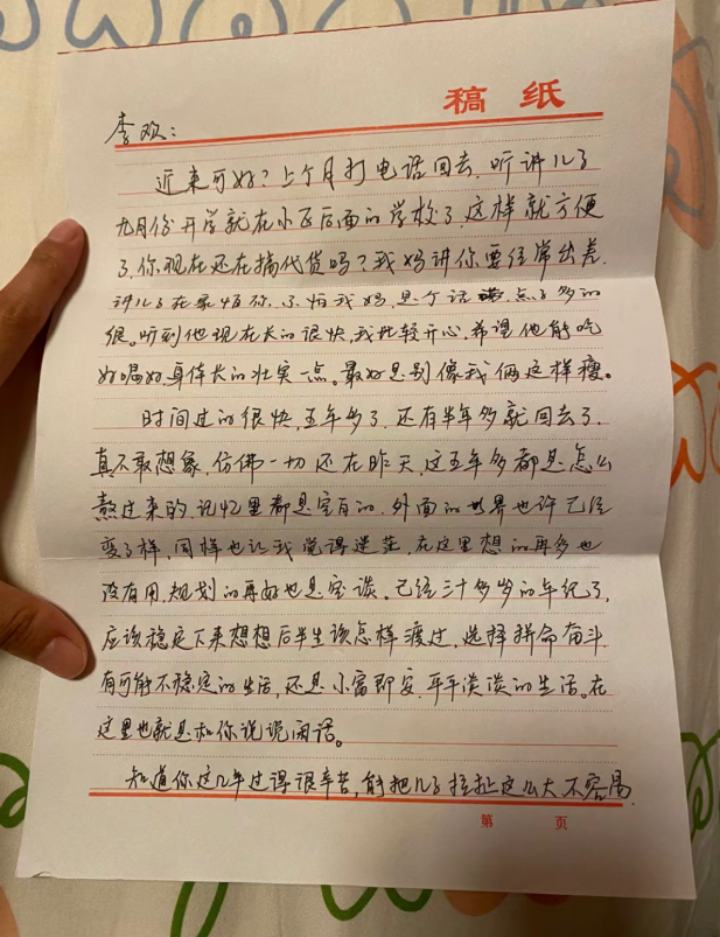 稿 纸
李欢:
近来可好?上个月打电话回去,听讲儿子
九月份开学就在小区后面的学校了,这样就方便
了,你现在还在搞代货吗?我妈讲你要经常出差,
讲儿子在家怕你,不怕我妈,是个话,点子多的
很。听到他现在长的很快,我比较开心,希望他能吃
好喝好,身体长的壮实一点。最好是别像我俩这样瘦。
时间过的很快,五年多了,还有半年多就回去了,
真不敢想象,仿佛一切还在昨天,这五年多都是怎么
熬过来的,记忆里都是空白的,外面的世界也许已经
变了样,同样也让我觉得迷茫,在这里想的再多也
没有用,规划的再好也是空谈。已经三十多岁的年纪了,
应该稳定下来想想后半生该怎样渡过,选择拼命奋斗,
有可能不稳定的生活,还是小富即安,平平淡淡的生活。在
这里也就是和你说说闲话。
知道你这几年过得很辛苦,能把儿子拉扯这么大不容易,
第 页